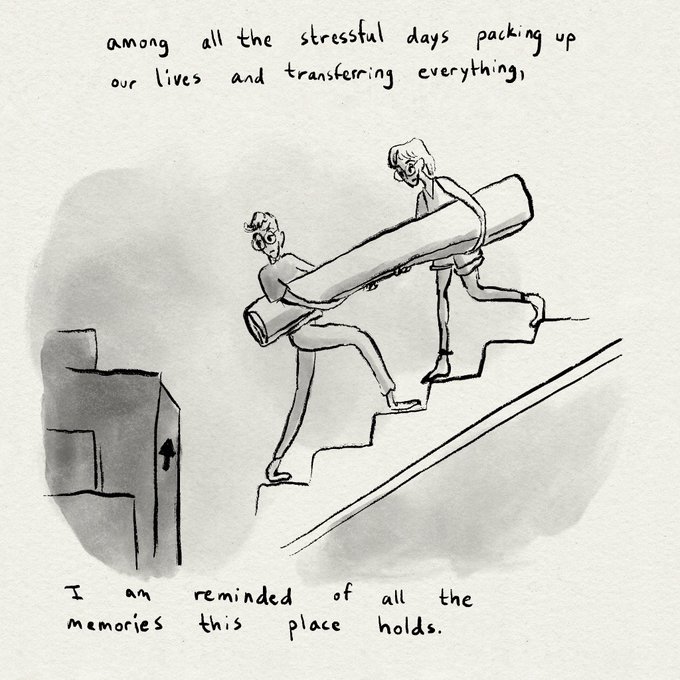 among all the stressful days packing up
our lives and transferring everything,
I am reminded of all the
memories this place holds.